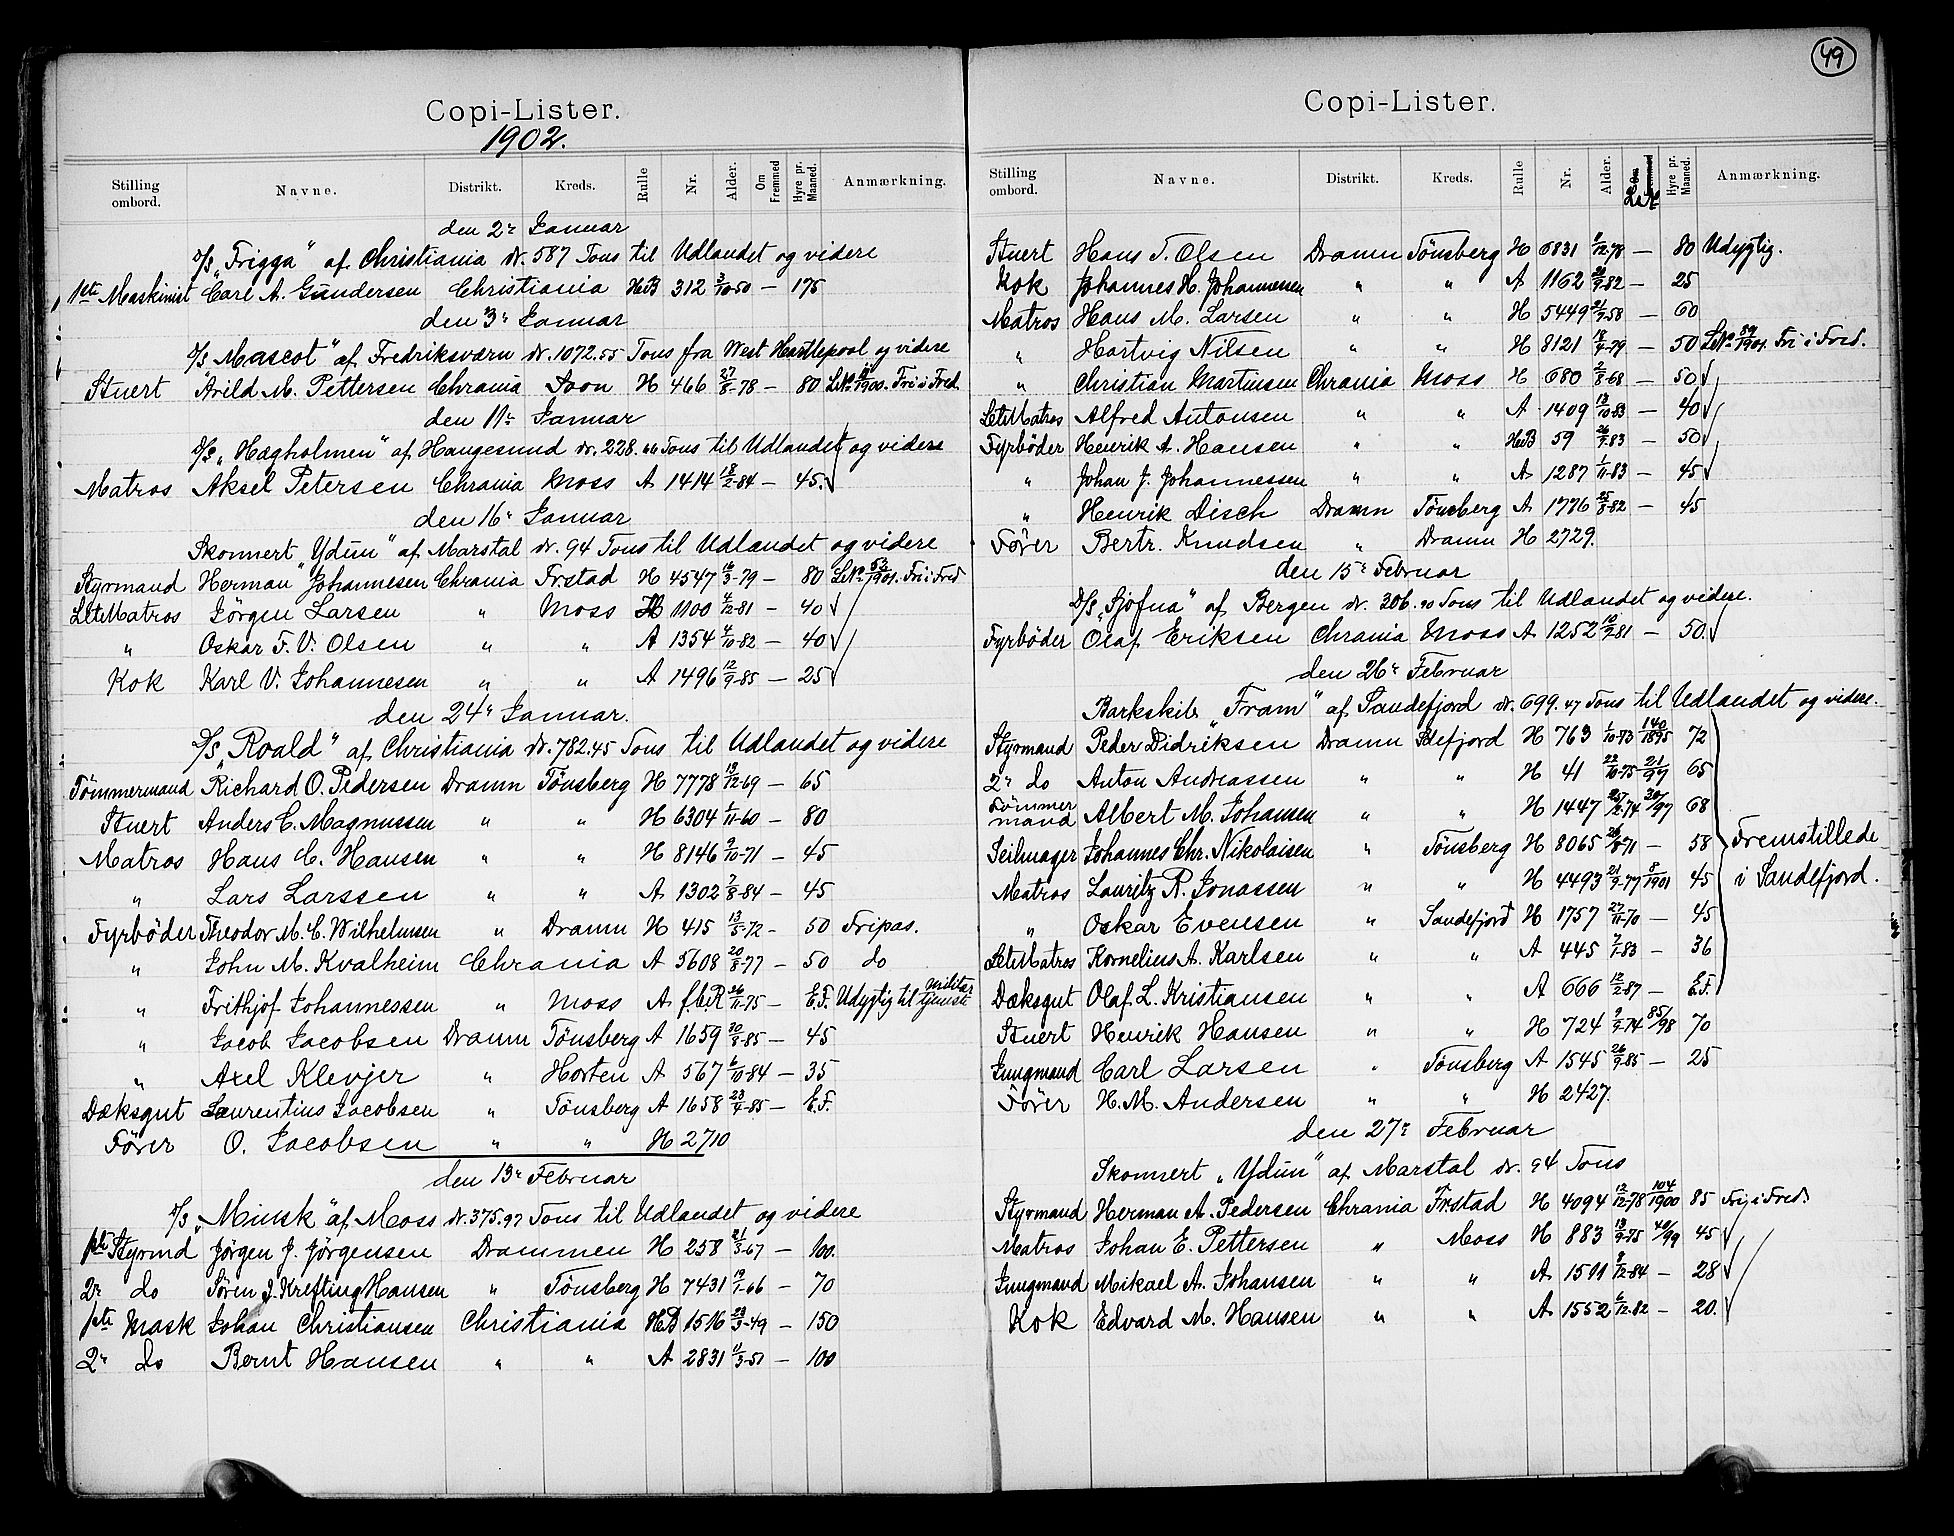 Copi-Lister.
1902.
Stilling ombord. Navne. Distrikt. Kreds. Rulle Nr. Alder. Om Fremmed Hyre pr. Maaned. Anmærkning.
den 2' Januar
S/S „Frigga" af Christiania dr. 587 Tons til Udlandet og videre
1ste Maskinist Carl A. Gundersen Christiania HdB 312 3/10-50 — 175
den 3' Januar
S/S Mascot" af Fredriksværn dr. 1072.55 Tons fra West Hartlepool og videre
Stuert Arild M. Pettersen Chrania Soon H 466 27/8-78 — 80 1900. Fri i Fred
den 11' Januar
D/S „Hægholmen" af Haugesund dr. 228.66 Tons til Udlandet og videre
Matros Aksel Petersen Chrania Moss A 1414 18/2-84 — 45.
den 16' Januar
Skonnert „Ydun" af Marstal dr. 94 Tons til Udlandet og videre
Styrmand Herman Johannesen Chrania Frstad H 4547 16/3-79 — 80 LNo 52/1901. Fri i Fred
LetMatros Jörgen Larsen " Moss H 1100 4/12-81 — 40
" Oskar F. V. Olsen " " A 1354 4/10-82 — 40
Kok Karl V. Johannesen " " A 1496 12/9-85 — 25
den 24' Januar.
S/S „Roald" af Christiania dr. 782.45 Tons til Udlandet og videre
Tömmermand Richard O. Pedersen Dramn Tönsberg H 7778 13/12-69 — 65
Stuert Anders C. Magnussen " " H 6304 1/11-60 — 80
Matros Hans C. Hansen " " H 8146 9/10-71 — 45
" Lars Larssen " " A 1302 7/8-84 — 45
Fyrböder Theodor M. C. Wilhelmsen " Dramn H 415 13/5-72 - 50 Fripas.
" John M. Kvalheim Chrania A 5608 20/8-77 — 50 do
" Frithjof Johannessen " Moss A f.b.R 26/11-75 — E.F. Udygtig til militærtjeneste
" Jacob Jacobsen Dramn Tönsberg A 1659 30/3-85 — 45
" Axel Klevjer " Horten A 567 6/10-84 — 35
Dæksgut Laurentius Jacobsen " Tönsberg A 1658 23/4-85 — E.F.
Förer O. Jacobsen " " H 2710
den 13' Februar
S/S „Minsk" af Moss dr. 375.97 Tons til Udlandet og videre
1ste Styrmd Jørgen J. Jørgensen Drammen H 258 21/3-67 — 100.
2' do Sören J. Krefting Hansen " Tönsberg H 7431 19/1-66 — 70
1ste Mask Johan Christiansen Christiania HdD 1516 23/3-49 — 150
2' do Bernt Hansen " " A 2831 11/3-51 — 100
49
Copi-Lister.
Stilling ombord. Navne. Distrikt. Kreds. Rulle Nr. Alder. Hyre pr. Maaned. Anmærkning.
Stuert Hans T. Olsen Dramn Tönsberg H 6831 8/12-78 — 80 Udygtig.
Kok Johannes H. Johannessen " " A 1162 21/9-82 — 25
Matros Hans M. Larsen " " H 5449 21/9-58 — 60
" Hartvig Nilsen " " H 8121 18/4-79 — 50 LNo 59/1901. Fri i Fred.
" Christian Martinsen Chrania Moss H 680 2/8-68 — 50
LetMatros Alfred Antonsen " " A 1409 13/10-83 — 40
Fyrböder Henrik A. Hansen " " HdB 59 26/9-83 — 50
" Johan J. Johannessen " " A 1287 1/11-83 — 45
" Henrik Disch Dramn Tönsberg A 1776 25/8-82 — 45
Förer Bertr. Knudsen " Dramn H 2729.
den 15' Februar
D/S „Sjofna" af Bergen dr. 306.90 Tons til Udlandet og videre.
Fyrböder Olaf Eriksen Chrania Moss A 1252 10/9-81 — 50
den 26' Februar
Barkskib „Fram" af Sandefjord dr. 699.47 Tons til Udlandet og videre.
Styrmand Peder Didriksen Dramn Sdefjord H 763 1/10-73 140/1895 72
2' do Anton Andreassen " " H 41 22/10-75 21/97 65
Tömmermand Albert M. Johansen " " H 1447 25/2-74 30/97 68
Seilmager Johannes Chr. Nikolaisen " Tönsberg H 8065 26/8-71 — 58 Fremstillede
Matros Lauritz R. Jonassen " " H 4493 21/9-77 8/1901 45 i Sandefjord.
" Oskar Evensen " Sandefjord H 1757 27/11-70 — 45
LetMatros Kornelius A. Karlsen " " A 445 7/1-83 — 36
Dæksgut Olaf L. Kristiansen " " A 666 12/2-87 — E.F.
Stuert Henrik Hansen " " H 724 9/9-74 85/98 70
Jungmand Carl Larsen " Tönsberg A 1545 26/9-85 — 25
Förer H. M. Andersen " " H 2427.
den 27' Februar
Skonnert „Ydun" af Marstal dr. 94 Tons
Styrmand Herman A. Pedersen Chrania Frstad H 4094 12/12-78 104/1900 85 Fri i Fred.
Matros Johan E. Pettersen " Moss H 883 19/9-75 40/99 45
Jungmand Mikael A. Johansen " " A 1511 8/12-84 — 28
Kok Edvard M. Hansen " " A 1552 6/12-82 — 20.